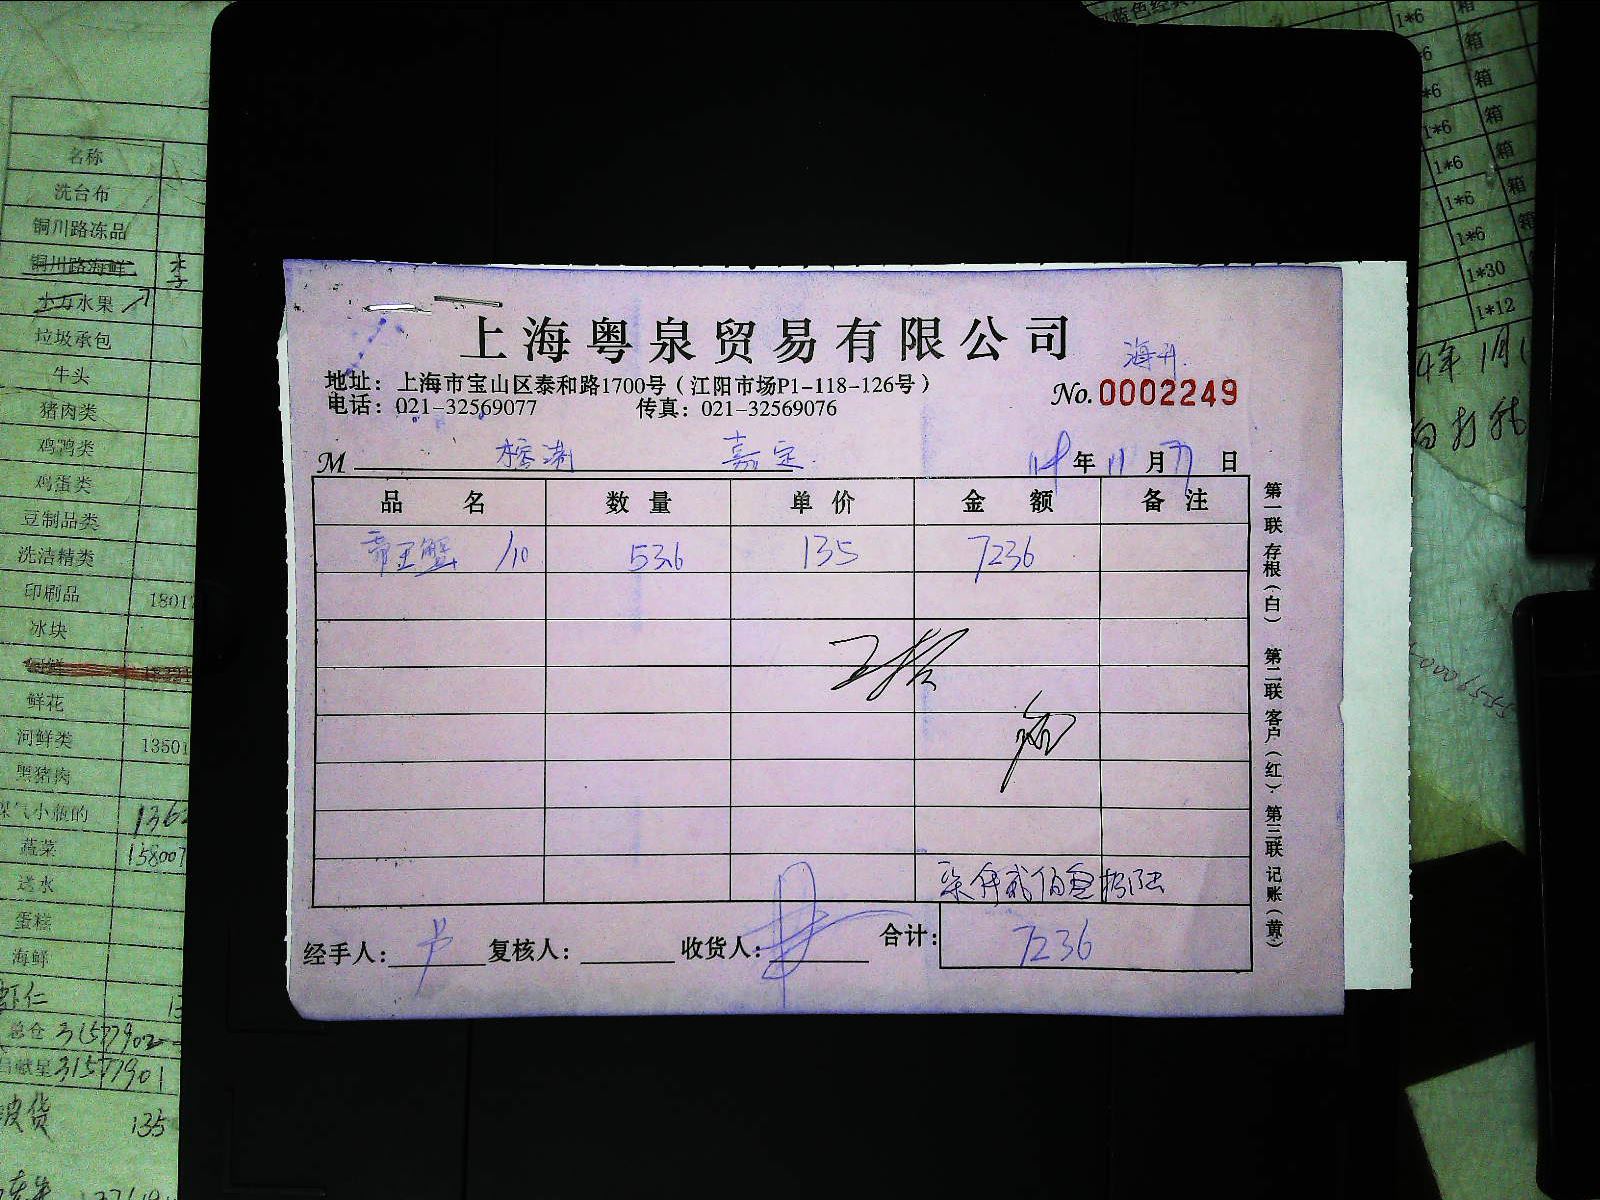 名称
洗台布
铜川路冻品
铜川路海鲜 李
水果
垃圾承包
牛头
猪肉类
鸡鸭类
鸡蛋类
豆制品类
洗洁精类
印刷品 18017
冰块
鲜花
河鲜类 13501
黑猪肉
煤气小瓶的 1362
蔬菜 158007
送水
蛋糕
海鲜
虾仁 13
总仓 31577902
31577901
135
上海粤泉贸易有限公司
地址：上海市宝山区泰和路1700号（江阳市场P1-118-126号）
电话：021-32569077 传真：021-32569076
No. 0002249
M 嘉定 年 11 月 日
品 名 数 量 单 价 金 额 备 注
帝王蟹 /10 53.6 135 7236
柒仟贰佰叁拾陆
经手人： 复核人： 收货人： 合计： 7236
第一联 存根（白） 第二联 客户（红） 第三联 记账（黄）
蓝色经典
1*6 箱
*6 箱
*6 箱
1*6 箱
1*6 箱
1*6 箱
1*6 箱
1*30
1*12